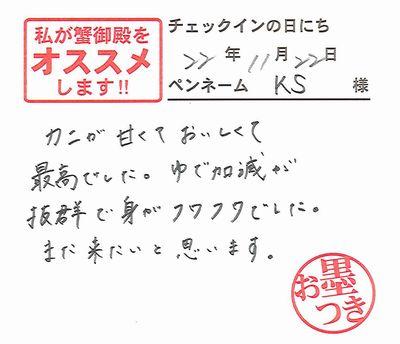 私が蟹御殿を
オススメ
します!!
チェックインの日にち
22年11月22日
ペンネーム KS 様
カニが甘くておいしくて
最高でした。ゆで加減が
抜群で身がフワフワでした。
また来たいと思います。
お墨つき